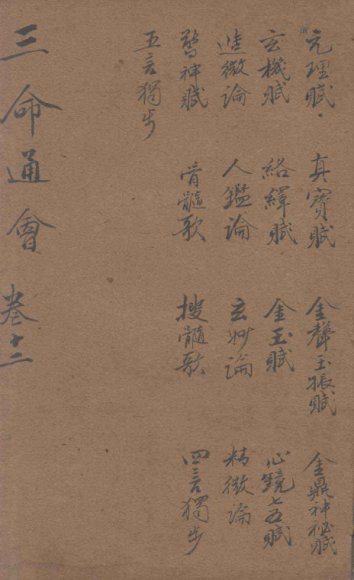 元理賦 真寶賦 金聲玉振賦 金鼎神秘賦
玄機賦 絡繹賦 金玉賦 心鏡七五賦
造微論 人鑑論 玄妙論 精微論
驚神賦 骨髓歌 搜髓歌 四言獨步
五言獨步
三命通會 卷十二